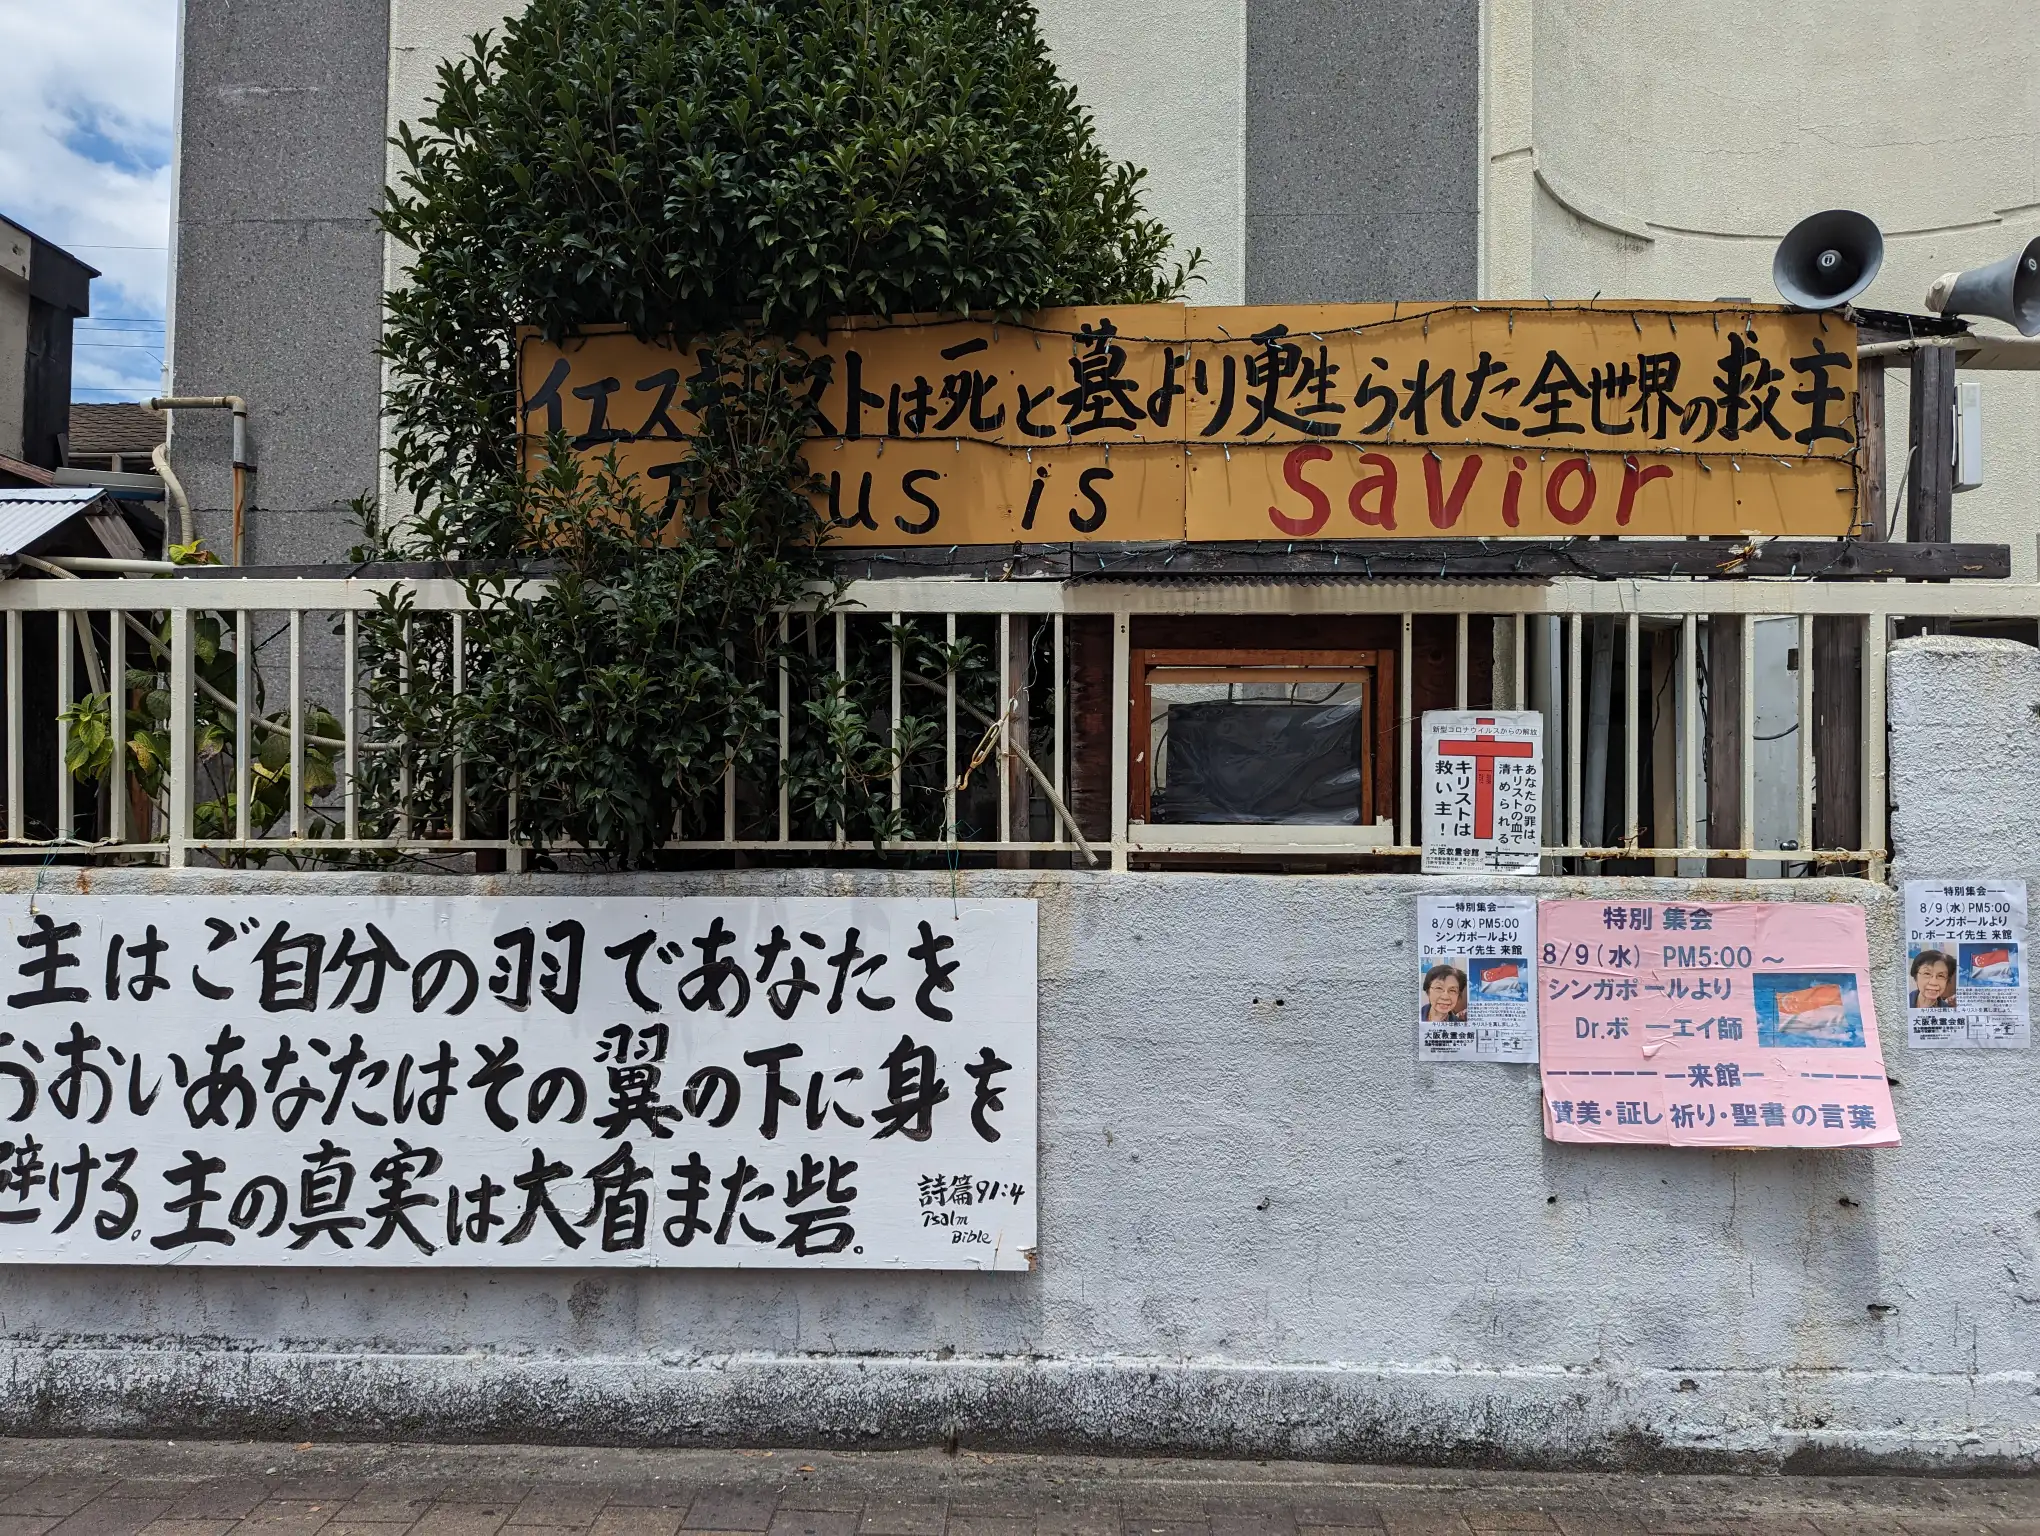 イエスキリストは死と墓より甦られた全世界の救主
us is savior
新型コロナウイルスからの解放
あなたの罪は、
キリストの血で
清められる
キリストは
救い主！
大阪救霊会館
主はご自分の羽であなたを
おおいあなたはその翼の下に身を
避ける。主の真実は大盾また砦。
詩篇91:4
Psalm
Bible
――特別集会――
8/9(水)PM5:00
シンガポールより
Dr.ボーエイ先生 来館
大阪救霊会館
特別 集会
8/9(水) PM5:00～
シンガポールより
Dr.ボーエイ師
―――――来館― -----
賛美・証し祈り・聖書の言葉
――特別集会――
8/9(水)PM5:00
シンガポールより
Dr.ボーエイ先生 来館
大阪救霊会館